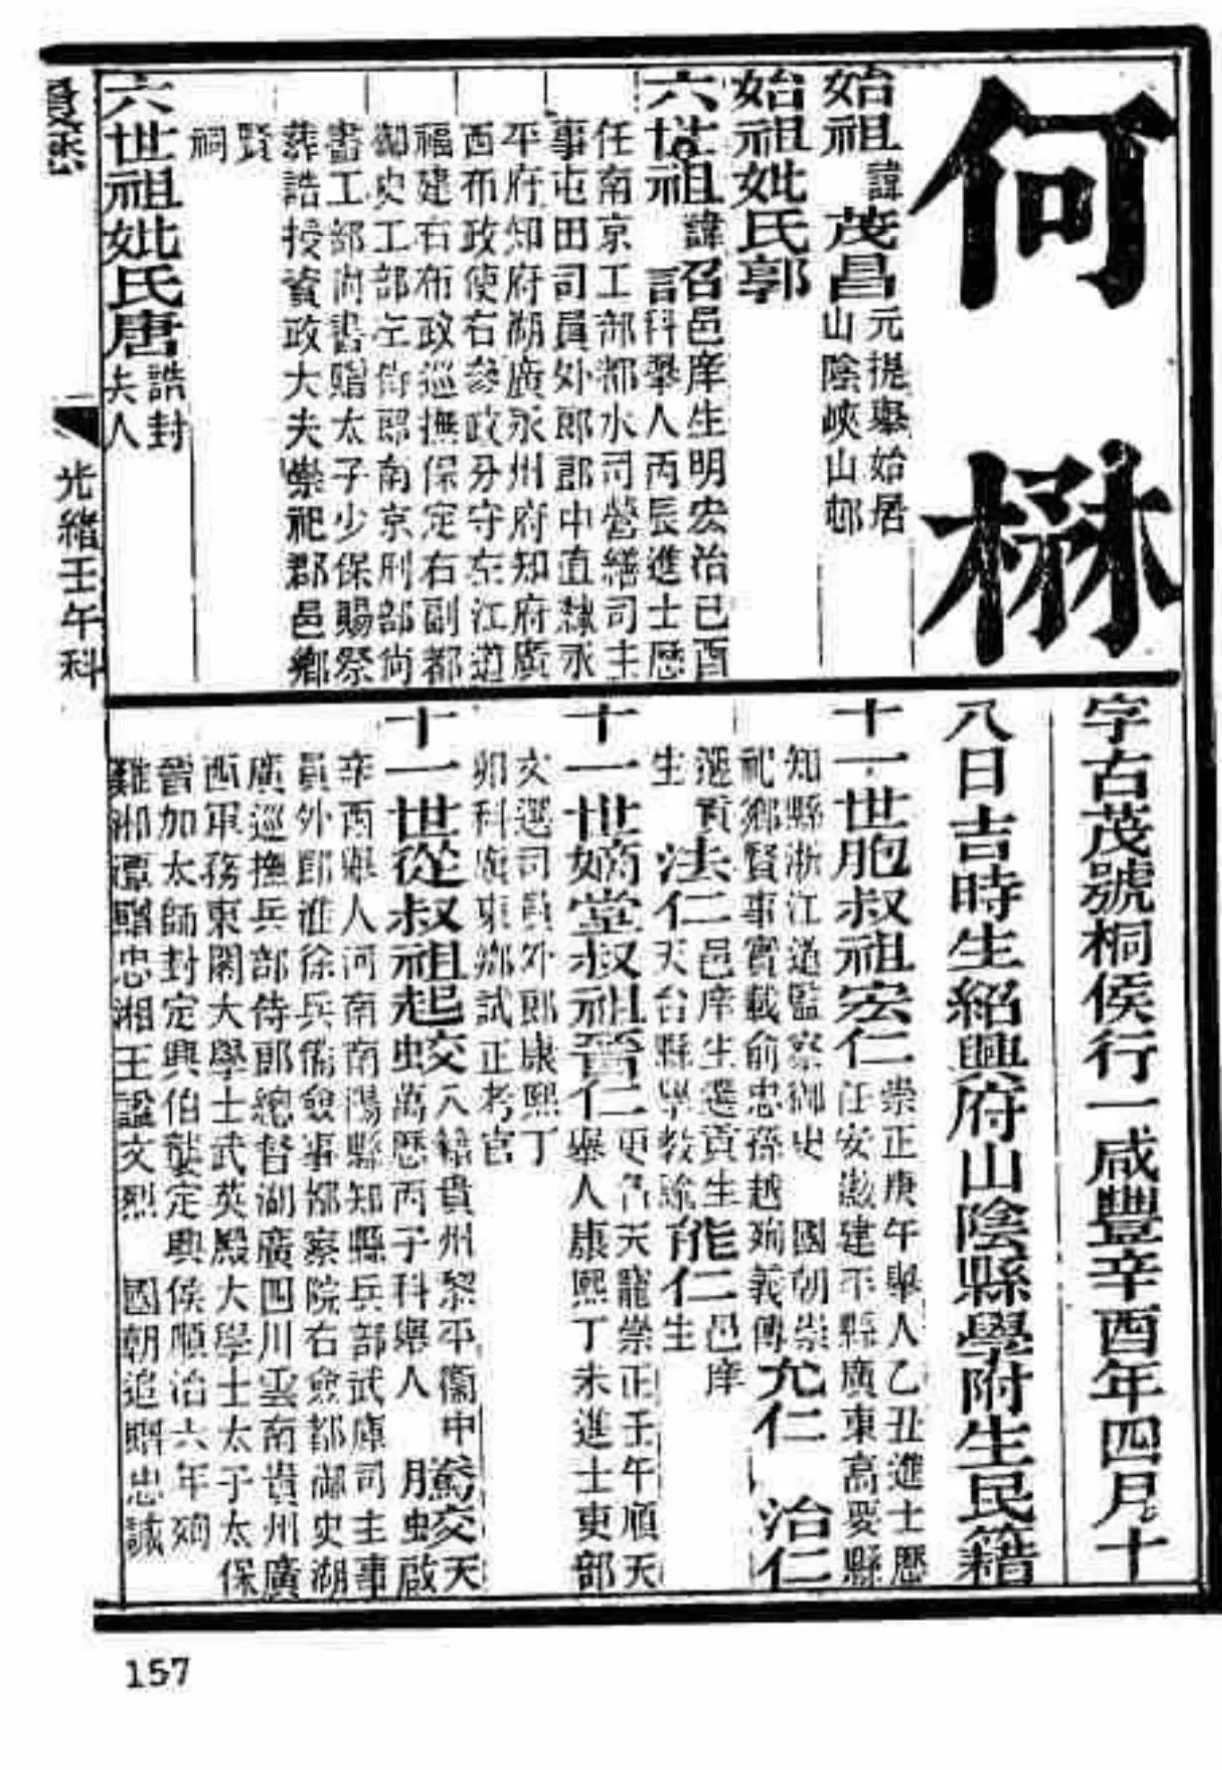 何楙
始祖諱茂昌元提舉始居
山陰峽山邨
始祖妣氏郭
六世祖諱召邑庠生明宏治己酉
科舉人丙辰進士歷
任南京工部都水司營繕司主
事屯田司員外郎郎中直隸永
平府知府湖廣永州府知府廣
西布政使右參政分守左江道
福建右布政巡撫保定右副都
御史工部左侍郎南京刑部尚
書工部尚書贈太子少保賜祭
葬誥授資政大夫崇祀郡邑鄉
賢
祠
六世祖妣氏唐誥封
夫人
字古茂號桐侯行一咸豐辛酉年四月十
八日吉時生紹興府山陰縣學附生民籍
十一世胞叔祖宏仁崇正庚午舉人乙丑進士歷
任安徽建平縣廣東高要縣
知縣浙江道監察御史 國朝崇
祀鄉賢事實載俞忠孫越殉義傳
允仁 治仁
選貢
生
法仁邑庠生選貢生
天台縣學教諭
能仁邑庠
生
十一世嫡堂叔祖晉仁更名天寵崇正壬午順天
舉人康熙丁未進士吏部
文選司員外郎康熙丁
卯科廣東鄉試正考官
十一世從叔祖起蛟入籍貴州黎平衞中
萬歷丙子科舉人
騰蛟天
啟
辛酉舉人河南南陽縣知縣兵部武庫司主事
員外郎淮徐兵備僉事都察院右僉都御史湖
廣巡撫兵部侍郎總督湖廣四川雲南貴州廣
西軍務東閣大學士武英殿大學士太子太保
晉加太師封定興伯襲定興侯順治六年殉
難湘潭贈忠湘王謚文烈 國朝追贈忠誠
光緒壬午科
157